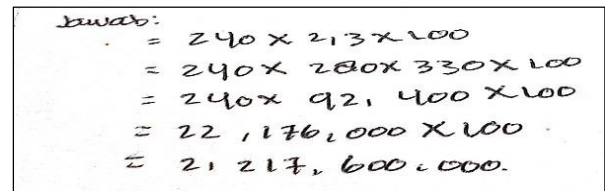 Jawab:
= 240 x 2,3 x 100
= 240 x 280 x 330 x 100
= 240 x 92, 400 x 100
= 22, 176, 000 x 100
= 2, 217, 600, 000.